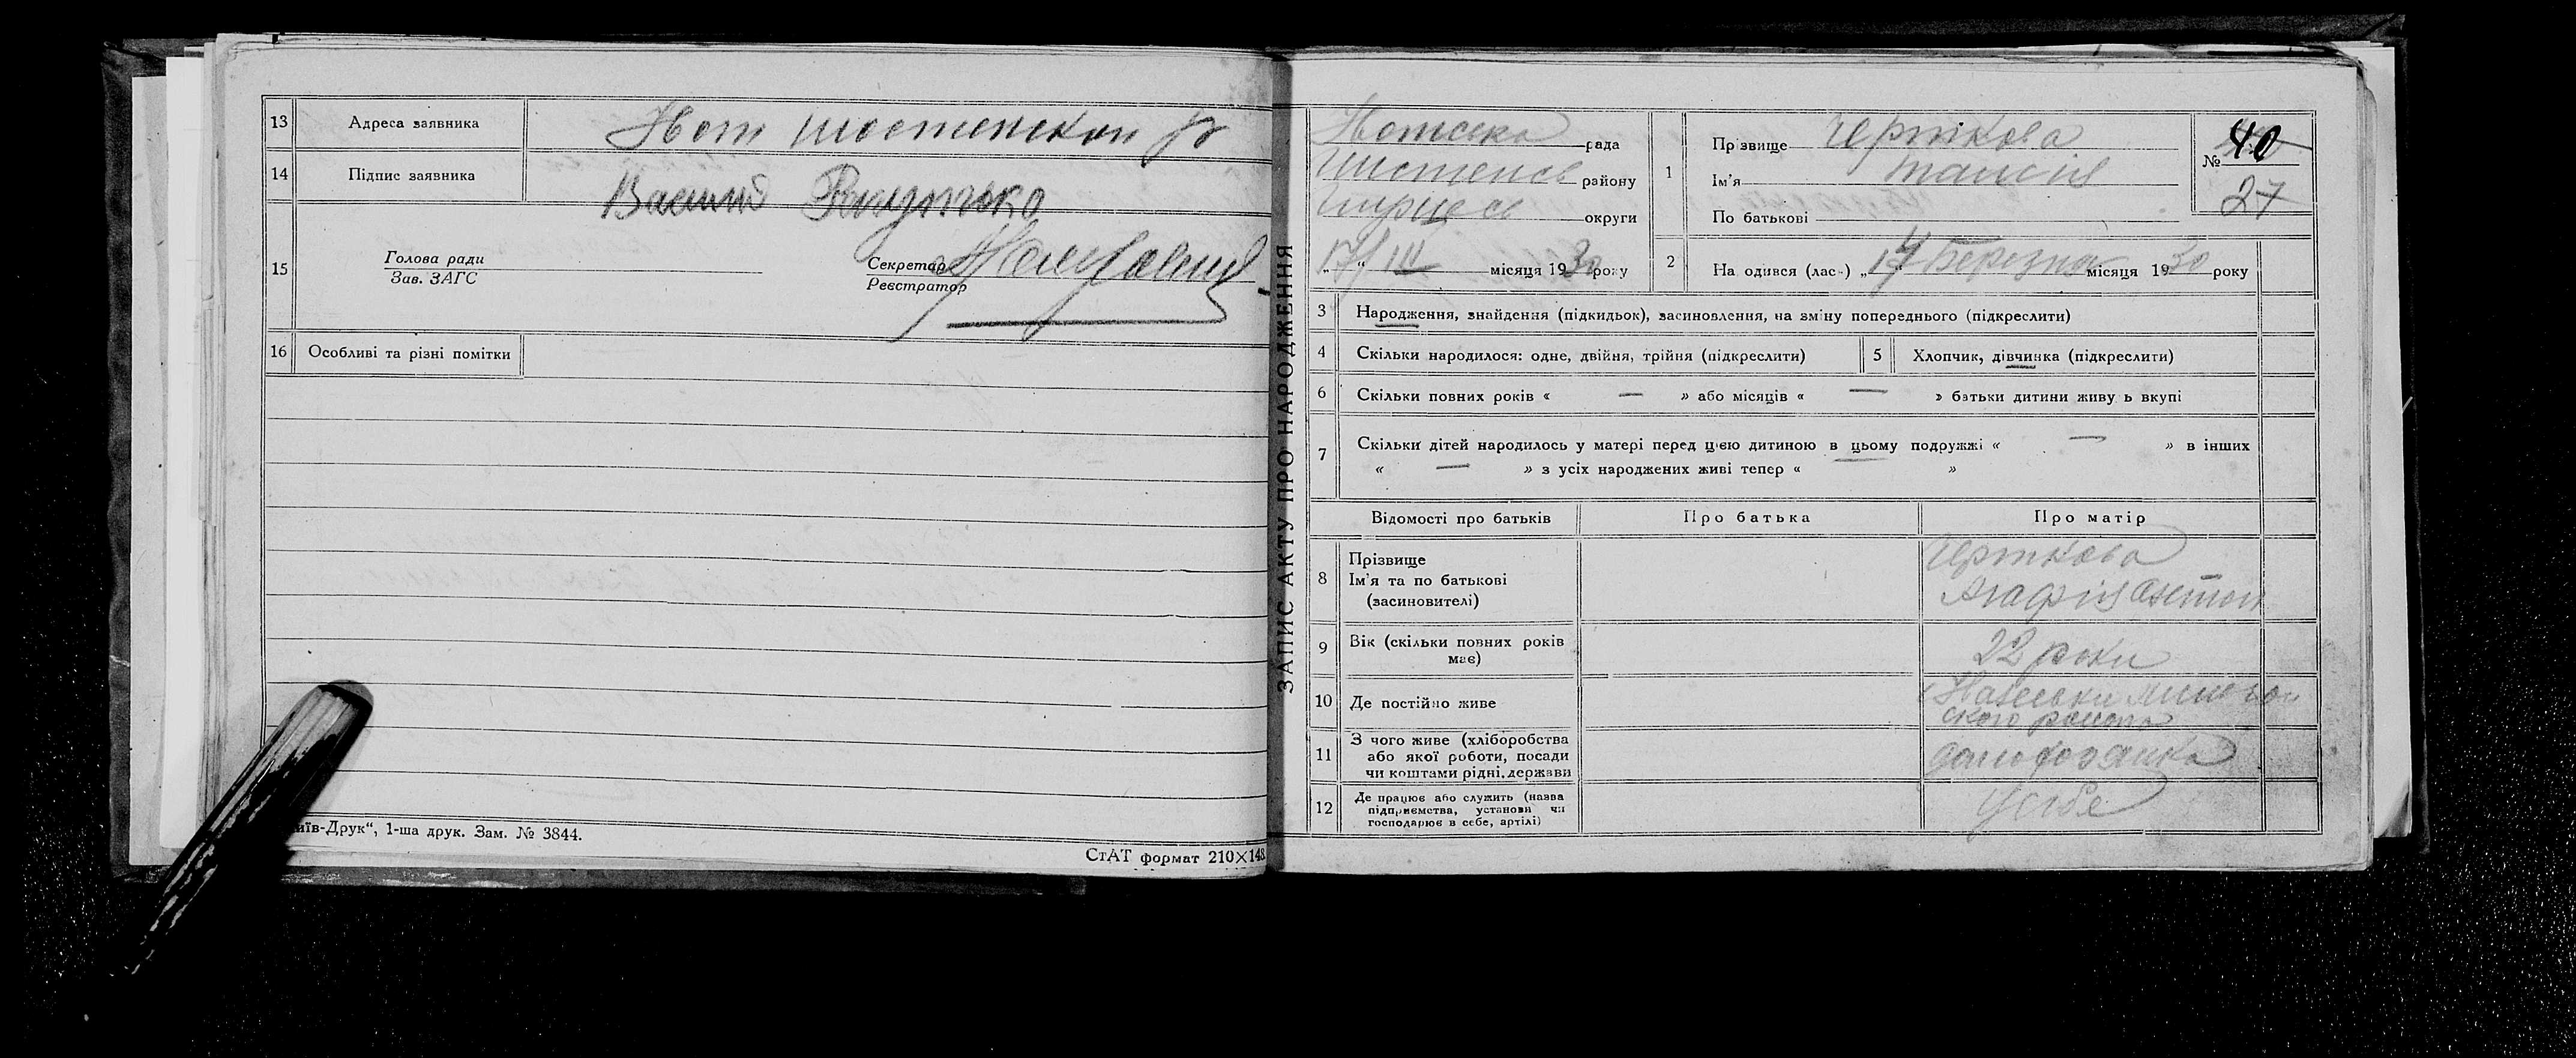 13 Адреса заявника
14 Підпис заявника
Василь
15 Голова ради
Зав. ЗАГС
Секретар
Реєстратор
16 Особливі та різні помітки
иїв-Друк“, 1-ша друк. Зам. № 3844.
СтАТ формат 210×148
ЗАПИС АКТУ ПРО НАРОДЖЕННЯ
рада
району
округи
17/III місяця 1930 року
1 Прізвище Черткова
Ім'я Таисія
По батькові
№ 40
27
2 На одився (лась) „ “ Березня місяця 1930 року
3 Народження, знайдення (підкидьок), засиновлення, на зміну попереднього (підкреслити)
4 Скільки народилося: одне, двійня, трійня (підкреслити)
5 Хлопчик, дівчинка (підкреслити)
6 Скільки повних років « — » або місяців « — » батьки дитини живу ь вкупі
7 Скільки дітей народилось у матері перед цією дитиною в цьому подружжі « — » в інших
« — » з усіх народжених живі тепер « »
Відомості про батьків Про батька Про матір
8 Прізвище
Ім'я та по батькові
(засиновителі)
Черткова
Агафія
9 Вік (скільки повних років
має)
22 роки
10 Де постійно живе
ского района
11 З чого живе (хліборобства
або якої роботи, посади
чи коштами рідні, держави
домохозяйка
12 Де працює або служить (назва
підприємства, установи чи
господарює в себе, артілі)
У себе